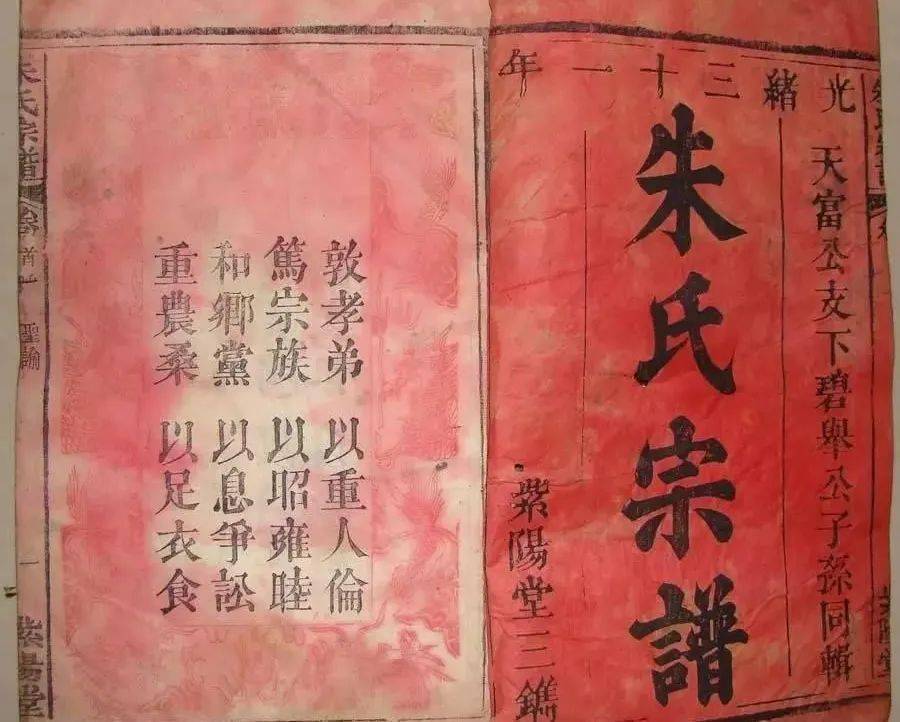 光緒三十一年
天富公支下碧舉公子孫同輯
朱氏宗譜
紫陽堂三鐫
敦孝弟 以重人倫
篤宗族 以昭雍睦
和鄉黨 以息爭訟
重農桑 以足衣食
朱氏宗譜 卷首 聖諭 一 紫陽堂